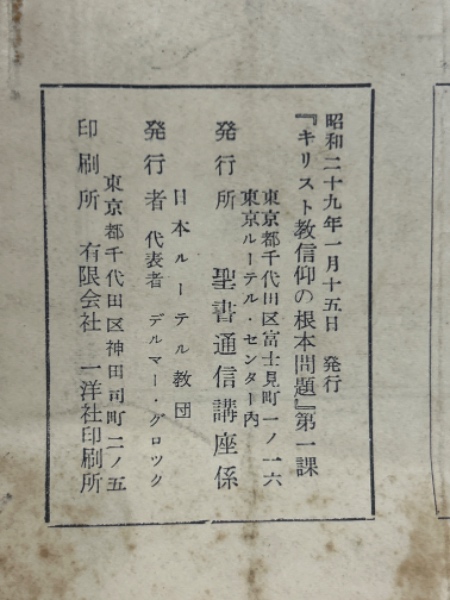 昭和二十九年一月十五日 発行
『キリスト教信仰の根本問題』第一課
東京都千代田区富士見町一ノ一六
東京ルーテル・センター内
発行所 聖書通信講座係
日本ルーテル教団
発行者 代表者 デルマー・グロツク
東京都千代田区神田司町二ノ五
印刷所 有限会社 一洋社印刷所